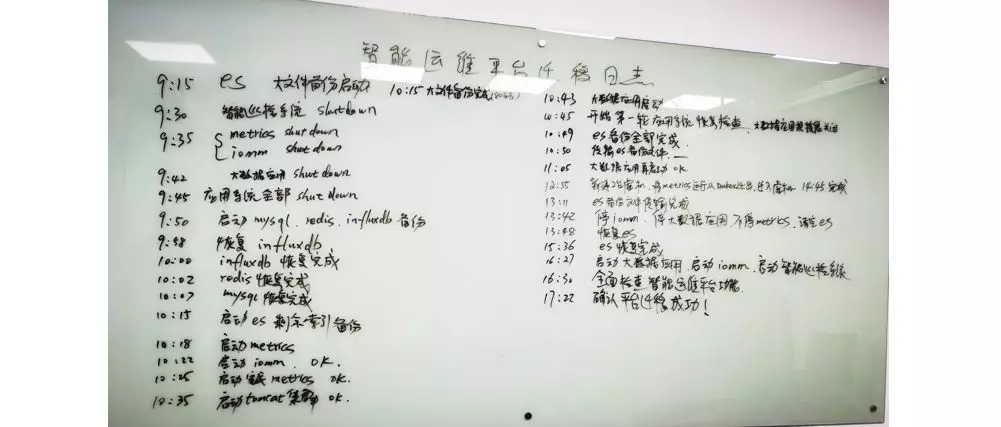 智能运维平台迁移日志
9:15 es 大文件备份启动 10:15 大文件备份完成(80G)
9:30 智能监控系统 shutdown
9:35 metrics shutdown
iomm shutdown
9:42 大数据应用 shutdown
9:45 应用系统全部 shutdown
9:50 启动 mysql、redis、influxdb 备份
9:58 恢复 influxdb
10:00 influxdb 恢复完成
10:02 redis 恢复完成
10:07 mysql 恢复完成
10:15 启动 es 剩余索引备份
10:18 启动 metrics
10:22 启动 iomm . OK.
10:25 启动 metrics OK.
10:35 启动 tomcat 集群 OK.
10:43 大数据应用启动
10:45 开始第一轮应用系统恢复检查、大数据应用
10:49 es 备份全部完成.
10:50 传输 es 备份文件.
11:05 大数据应用再启动 OK
12:55 metrics 14:45 完成
13:11 es 备份文件传输完成
13:42 停 iomm、停大数据应用、不停 metrics、清空 es
13:48 恢复 es
15:36 es 恢复完成
16:27 启动大数据应用、启动 iomm、启动智能监控系统
16:30 全面检查智能运维平台功能.
17:22 确认平台迁移成功!